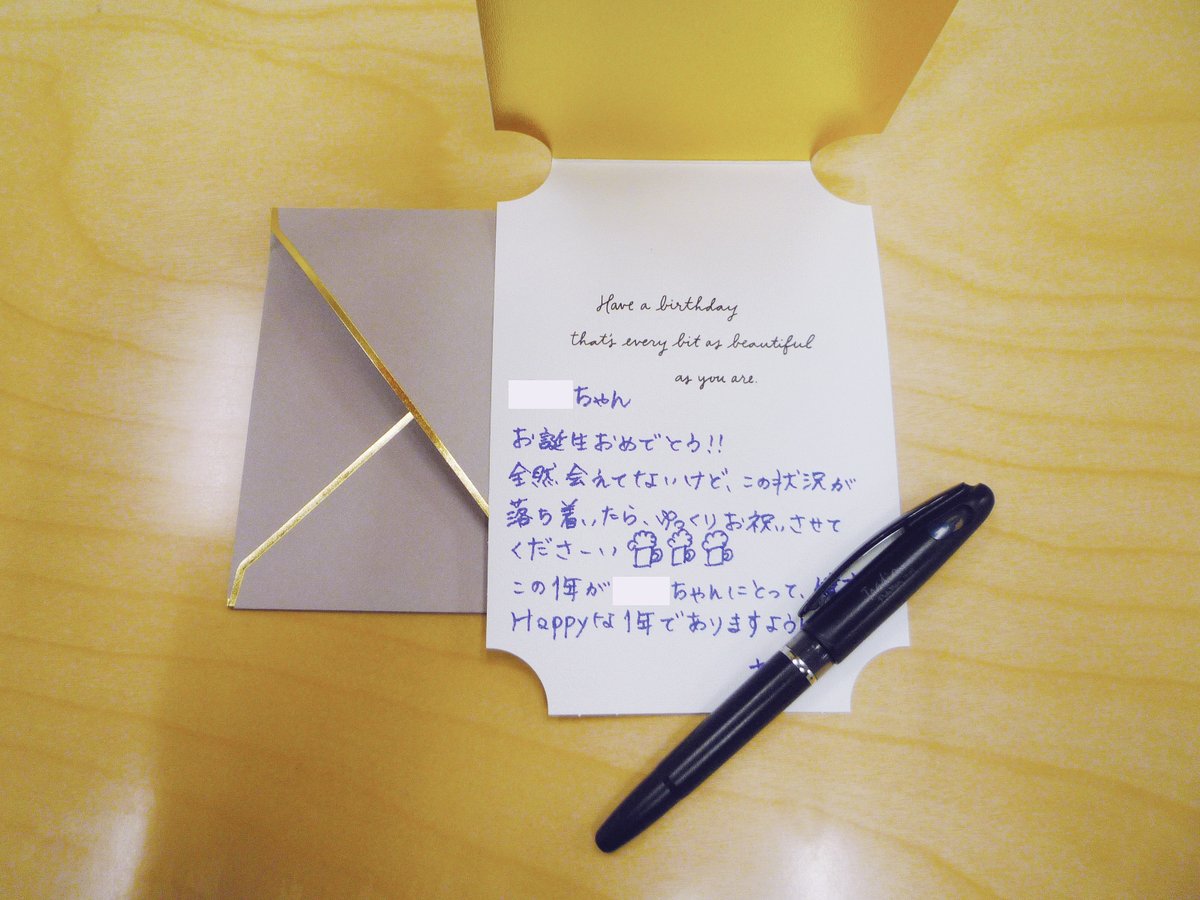 Have a birthday
that's every bit as beautiful
as you are.
ちゃん
お誕生おめでとう!!
全然、会えてないけど、この状況が
落ち着いたら、ゆっくりお祝いさせて
くださーい
この1年が ちゃんにとって、
Happyな1年でありますように